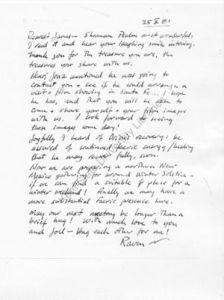 25 X 81
Dearest James - Shaman Psalm most wonderful;
I read it and hear your laughing smile intoning.
Thank you for the treasure you are, the
treasures you share with us.
Jonz mentioned he was going to
contact you - see if he could arrange a
film showing in Santa Fe... I hope
he has, and that you will be able to
come & share yourself & your film images
with us. I look forward to seeing
these images some day!
Joyfully I heard of recovery: be
assured of continued faerie energy/healing
that he may recover fully, soon.
Now we are preparing a northern New
Mexico gathering for around winter solstice -
if we can find a suitable place for a
winter weekend! Finally we may have a
more substantial faerie presence here.
May our next meeting be longer than a
brief hug! With much love to you
and Joel - hug each other for me!
Raven